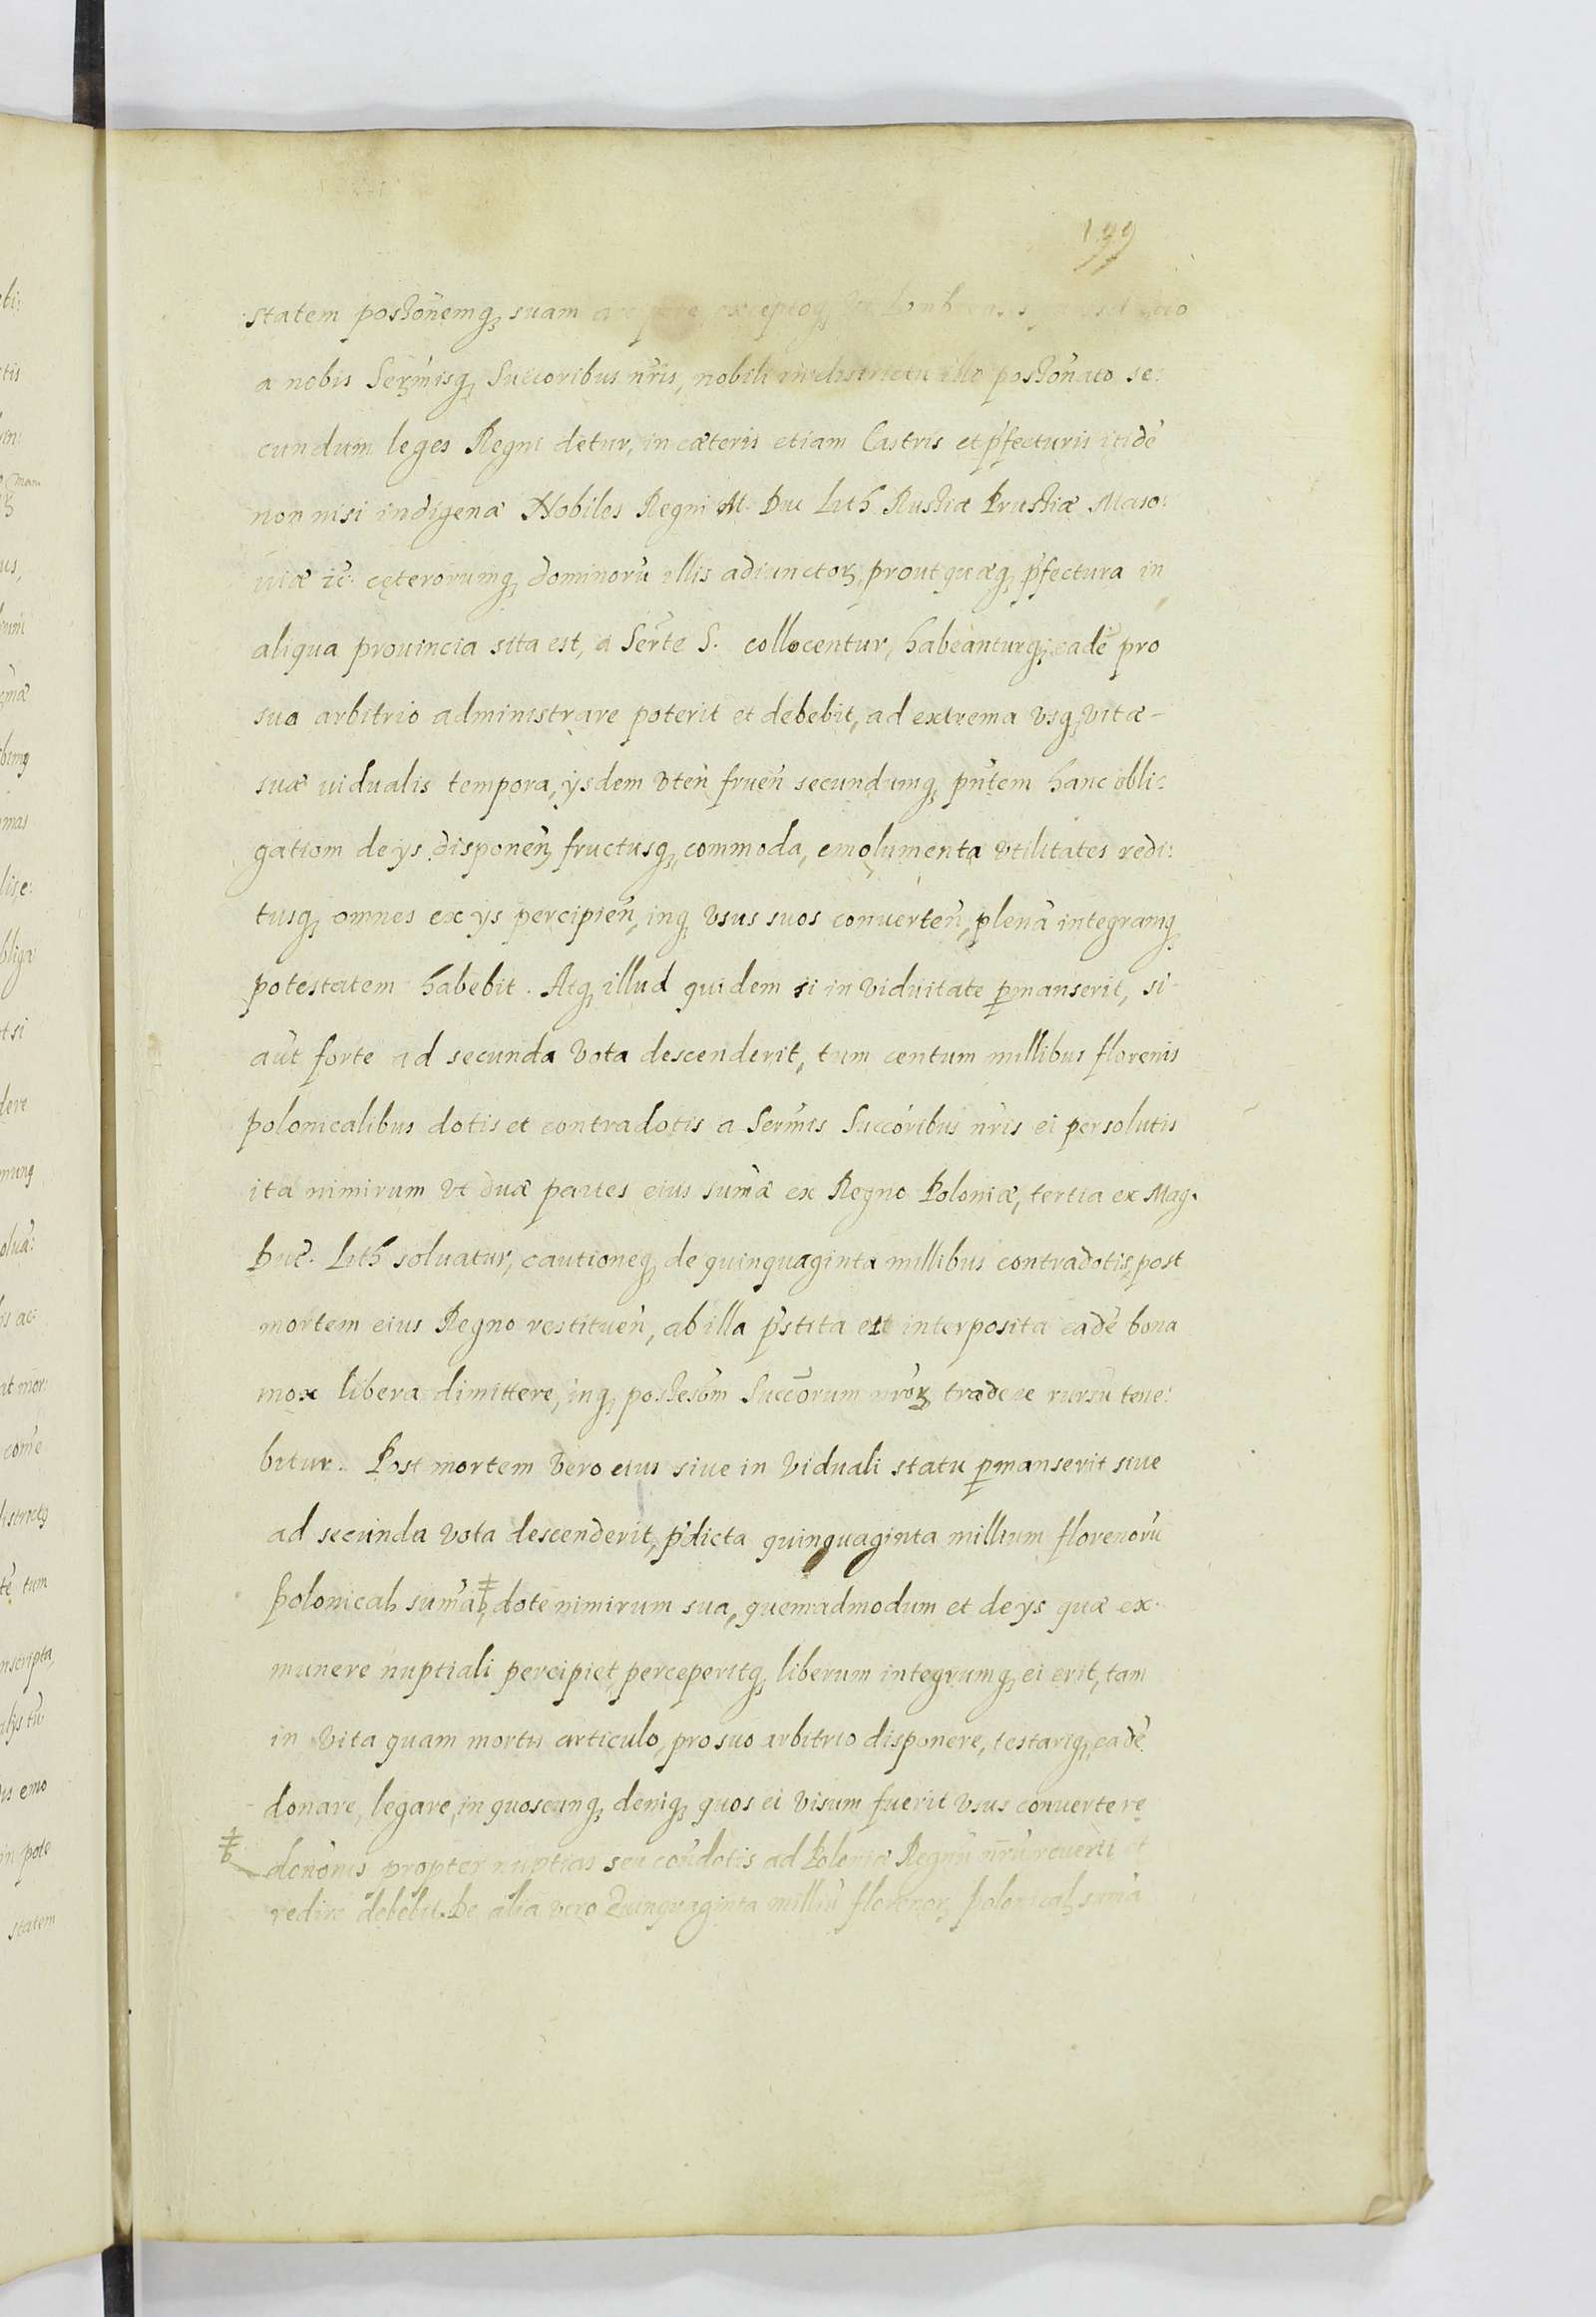 199
statem possõnemq, suam
a nobis Serm̃isq, Succoribus nr̃is, nobili in districtu illo possõnato se:
cundum leges Regni detur, in cæteris etiam Castris et p̃fecturis itidẽ
non nisi indigenæ Nobiles Regni M. Duc Lith Russiæ Prussiæ Maso:
uiæ ic̃. cęterorumq, dominorũ illis adiunctoꝝ, prout quæq, p̃fectura in
aliqua prouincia sita est, a Serte S. collocentur, habeanturq, eadẽ pro
suo arbitrio administrare poterit et debebit, ad extrema vsq, vitæ -
suæ uidualis tempora, ysdem vteñ frueñ secundumq, pñtem hanc obli:
gatiom de ys disponeñ, fructusq, commoda, emolumenta vtilitates redi:
tusq, omnes ex ys percipieñ, inq, vsus suos conuerteñ, plenã integramq,
potestatem habebit. Atq, illud quidem si in viduitate ꝑmanserit, si
aũt forte ad secunda vota descenderit, tum centum millibus florenis
polonicalibus dotis et contradotis a Serm̃is Succõribus nr̃is ei persolutis
ita nimirum vt duæ partes eius sum̃æ ex Regno Poloniæ, tertia ex Mag.
Duc̃. Lith soluatur, cautioneq, de quinquaginta millibus contradotis, post
mortem eius Regno restitueñ, ab illa p̃stita et interposita eadẽ bona
mox libera dimittere, inq, possesõm Succõrum nr̃oꝝ tradere rursũ tene:
bitur. Post mortem vero eius siue in viduali statu ꝑmanserit siue
ad secunda vota descenderit, p̃dicta quinquaginta millium florenorũ
polonicalꝭ sum̃a ⧧, dote nimirum sua, quemadmodum et de ys quæ ex
munere nuptiali percipiet perceperitq, liberum integrumq, ei erit, tam
in vita quam mortis articulo, pro suo arbitrio disponere, testariq, eadẽ
donare, legare, in quoscunq, deniq, quos ei visum fuerit vsus conuertere
⧧ donõnis propter nuptias seu coñdotis ad Poloniæ Regnũ nr̃ũ reuerti et
redire debebit. De alia vero Quinquaginta milliũ florenoꝝ polonicalꝭ sum̃a